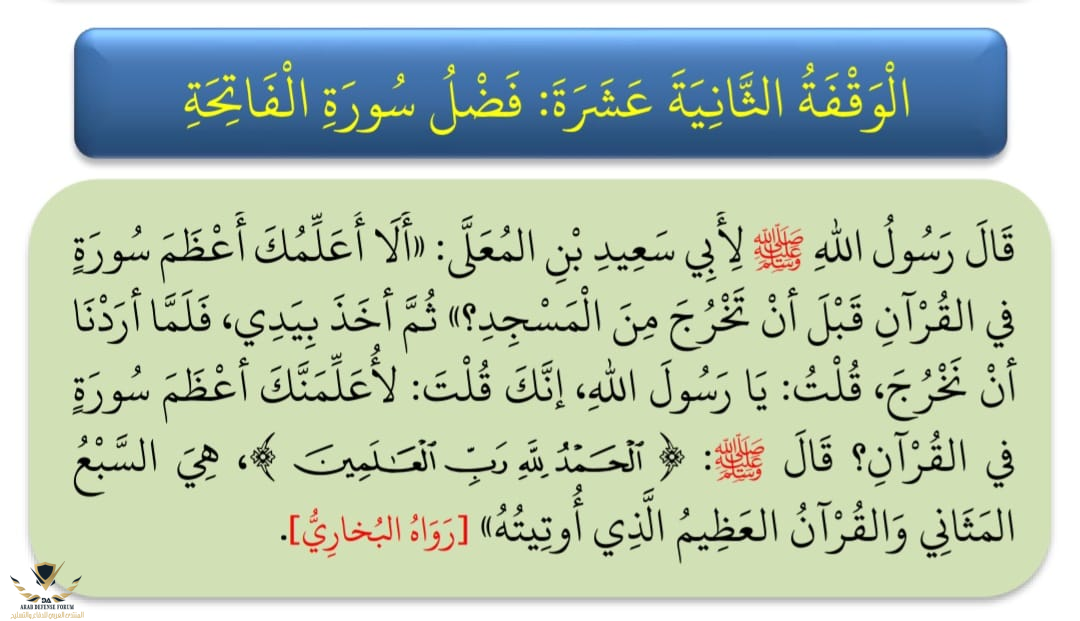 الْوَقْفَةُ الثَّانِيَةَ عَشَرَةَ: فَضْلُ سُورَةِ الْفَاتِحَةِ
قَالَ رَسُولُ اللهِ ﷺ لِأَبِي سَعِيدِ بْنِ المُعَلَّى: «أَلَا أُعَلِّمُكَ أَعْظَمَ سُورَةٍ
فِي القُرْآنِ قَبْلَ أنْ تَخْرُجَ مِنَ الْمَسْجِدِ؟» ثُمَّ أخَذَ بِيَدِي، فَلَمَّا أرَدْنَا
أنْ نَخْرُجَ، قُلْتُ: يَا رَسُولَ اللهِ، إنَّكَ قُلْتَ: لأُعَلِّمَنَّكَ أعْظَمَ سُورَةٍ
فِي القُرْآنِ؟ قَالَ ﷺ: ﴿ ٱلۡحَمۡدُ لِلَّهِ رَبِّ ٱلۡعَٰلَمِينَ ﴾، هِيَ السَّبْعُ
المَثَانِي وَالقُرْآنُ العَظِيمُ الَّذِي أُوتِيتُهُ» [رَوَاهُ البُخارِيُّ].
DA
ARAB DEFENSE FORUM
المنتدى العربي للدفاع والتسليح